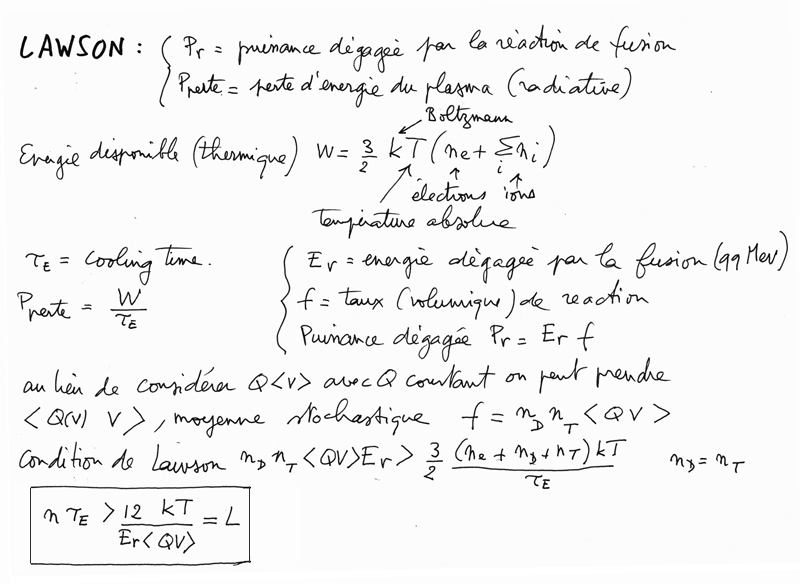 LAWSON : { Pr = puissance dégagée par la réaction de fusion
Pperte = perte d'énergie du plasma (radiative)
Boltzmann
Energie disponible (thermique) W = 3/2 kT (ne + Σi ni)
électrons ions
température absolue
τE = cooling time.
Pperte = W/τE
{ Er = energie dégagée par la fusion (99 Mev)
f = taux (volumique) de reaction
Puissance dégagée Pr = Er f
au lieu de considérer Q<v> avec Q constant on peut prendre
<Q(v) V>, moyenne stochastique f = nD nT <QV>
Condition de Lawson nD nT <QV> Er > 3/2 (ne + nD + nT) kT / τE nD = nT
n τE > 12 kT / Er <QV> = L